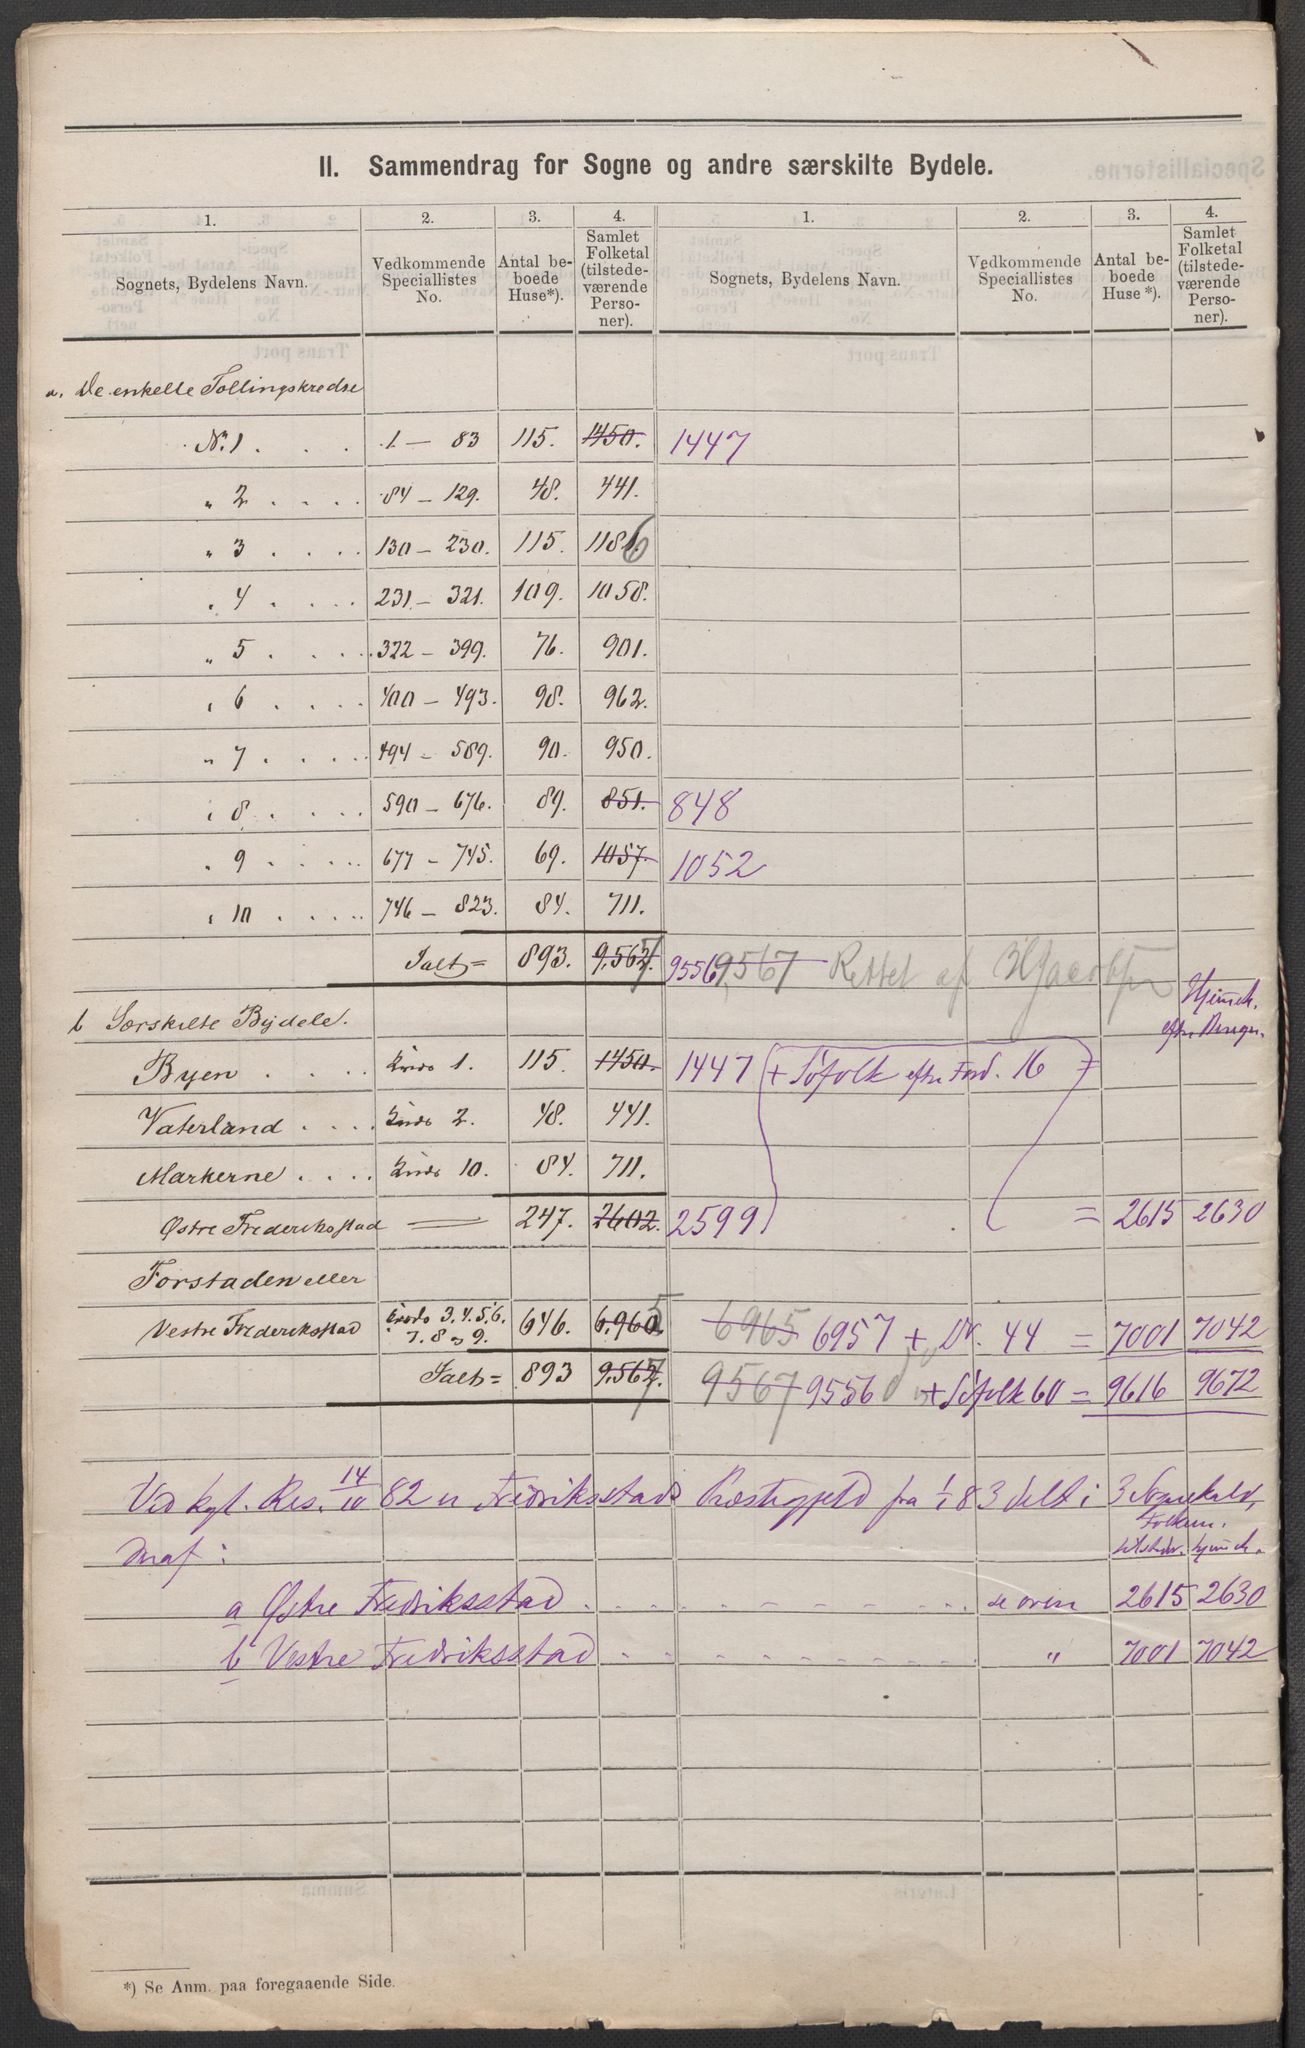 II. Sammendrag for Sogne og andre særskilte Bydele.
1. 2. 3. 4. 1. 2. 3. 4.
Sognets, Bydelens Navn. Vedkommende Speciallistes No. Antal beboede Huse*). Samlet Folketal (tilstedeværende Personer). Sognets, Bydelens Navn. Vedkommende Speciallistes No. Antal beboede Huse*). Samlet Folketal (tilstedeværende Personer).
a. De enkelte Tællingskredse
Nr. 1 . . . 1 — 83 115. 1450. 1447
" 2 . . . . 84 — 129. 48. 441.
" 3 . . . . 130 — 230. 115. 1186
" 4 . . . . 231 — 321. 109. 1058.
" 5 . . . . 322 — 399. 76. 901.
" 6 . . . . 400 — 493. 98. 962.
" 7 . . . . 494 — 589. 90. 950.
" 8 . . . . 590 — 676. 89. 851. 848
" 9 . . . . 677 — 745. 69. 1057. 1052
" 10 . . . . 746 — 823. 84. 711.
Ialt = 893. 9,567. 9556 9567 Rettet af
b Særskilte Bydele. Hjemh.
Byen . . . . Kreds 1. 115. 1450. 1447 + Søfolk efter Ford. 16
Vaterland . . . . Kreds 2. 48. 441.
Markerne . . . . Kreds 10. 84. 711.
Østre Frederiksstad — 247. 2602. 2599 = 2615 2630
Forstaden eller
Vestre Frederiksstad Kreds 3. 4. 5. 6. 7. 8 og 9. 646. 6,965 6965 6957 + Do. 44 = 7001 7042
Ialt = 893 9,567. 9567 9556 + Søfolk 60 = 9616 9672
Ved kgl. Res. 14/10 82 er Fredriksstads Præstegjeld fra 1/1 83 delt i 3 Sognekald,
Folkem.
hvoraf: tilstedev. hjemh.
a Østre Fredriksstad . . . . se oven 2615 2630
b Vestre Fredriksstad . . . . " 7001 7042
*) Se Anm. paa foregaaende Side.